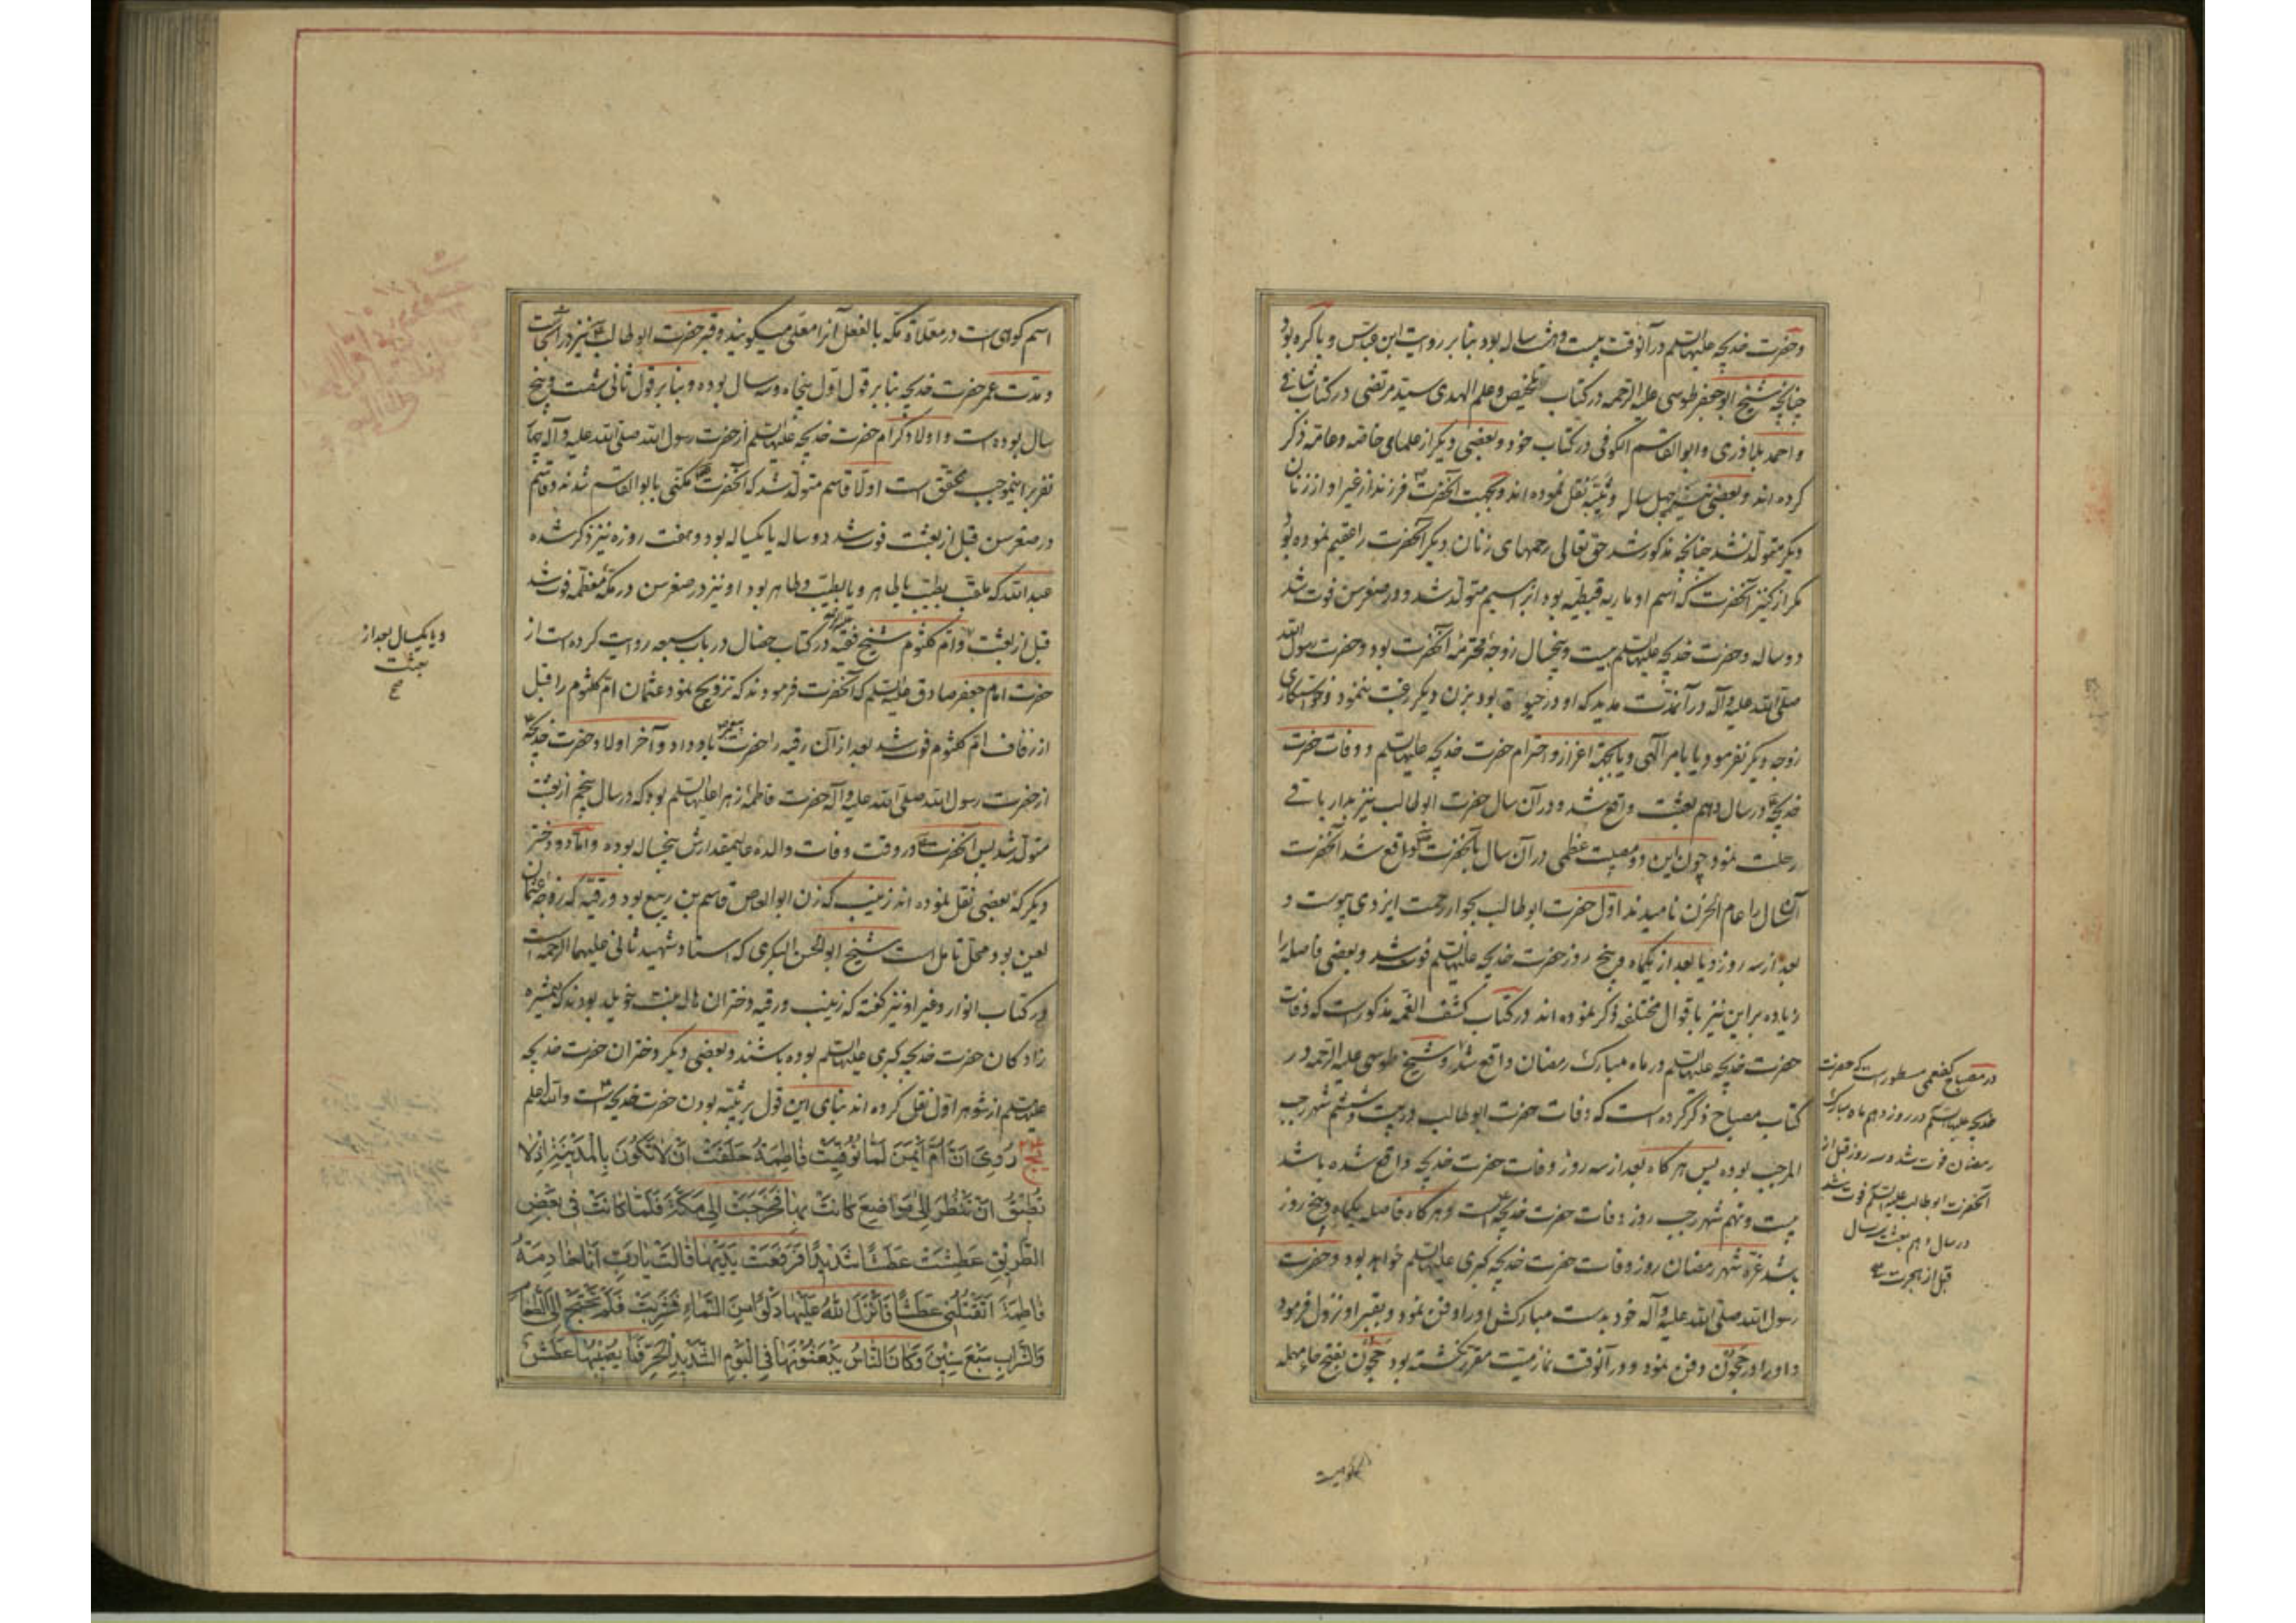 و حضرت خدیجه علیها السلم در آنوقت بیست و هشت ساله بود بنا بر روایت ابن عباس و باکره بود
چنانچه شیخ ابو جعفر طوسی علیه الرحمه در کتاب تلخیص و علم الهدی سید مرتضی در کتاب شافی
و احمد بلاذری و ابو القاسم الکوفی در کتاب خود و بعضی دیگر از علمای خاصه و عامه ذکر
کرده اند و بعضی نیز چهل ساله و ثیبه نقل نموده اند و بجهت آنحضرت فرزند از غیر او از زنان
دیگر متولد نشد چنانچه مذکور شد حق تعالی رحمهای زنان دیگر آنحضرت را عقیم نموده بود
مگر از کنیز آنحضرت که اسم او ماریه قبطیه بود ابراهیم متولد شد و در صغر سن فوت شد
دو ساله و حضرت خدیجه علیها السلم بیست و پنجسال زوجه محترمه آنحضرت بود و حضرت رسول الله
صلی الله علیه و آله در آنمدت مدید که او در حیوة بود بزن دیگر رغبت ننمود و خواستکاری
زوجه دیگر نفرمود یا بامر الهی و یا بجهة اعزاز و احترام حضرت خدیجه علیها السلم و وفات حضرت
خدیجه در سال دهم بعثت واقع شد و در آن سال حضرت ابو طالب نیز بدار باقی
رحلت نمود چون این دو مصیبت عظمی در آن سال بآنحضرت واقع شد آنحضرت
آن سال را عام الحزن نامیدند اول حضرت ابو طالب بجوار رحمت ایزدی پیوست و
بعد از سه روز و یا بعد از یکماه و پنج روز حضرت خدیجه علیها السلم فوت شد و بعضی فاصله را
زیاده بر این نیز باقوال مختلفه ذکر نموده اند در کتاب کشف الغمه مذکور است که وفات
حضرت خدیجه علیها السلم در ماه مبارک رمضان واقع شد و شیخ طوسی علیه الرحمه در
کتاب مصباح ذکر کرده است که وفات حضرت ابو طالب در بیست و ششم شهر رجب
المرجب بوده پس هر کاه بعد از سه روز وفات حضرت خدیجه واقع شده باشد
بیست و نهم شهر رجب روز وفات حضرت خدیجه است و هر کاه فاصله یکماه و پنج روز
باشد غره شهر رمضان روز وفات حضرت خدیجه کبری علیها السلم خواهد بود و حضرت
رسول الله صلی الله علیه و آله خود بدست مبارکش او را دفن نمود و بقبر او نزول فرمود
و او را در حجون دفن نمود و در آنوقت نماز میت مقرر نکشته بود حجون بفتح حاء مهمله
در مصباح کفعمی مسطور است که حضرت
خدیجه علیها السلم در روز دهم ماه مبارک
رمضان فوت شد و سه روز قبل از
آنحضرت ابو طالب علیه السلم فوت شد
در سال دهم بعثت سال
قبل از هجرت
اسم کوهی است در معلاة مکه بالفعل آنرا معلی میکویند و قبر حضرت ابو طالب نیز در آنجاست
و مدت عمر حضرت خدیجه بنا بر قول اول پنجاه و سه سال بوده و بنا بر قول ثانی شصت و پنج
سال بوده است و اولاد کرام حضرت خدیجه علیها السلم از حضرت رسول الله صلی الله علیه و آله
اینموجب محقق است اولا قاسم متولد شد که آنحضرت مکنی بابو القاسم شدند و قاسم
در صغر سن قبل از بعثت فوت شد دو ساله یا یکساله بود و هفت روزه نیز ذکر شده
عبد الله که ملقب بطیب یا طاهر و یا بطیب و طاهر بود او نیز در صغر سن در مکه معظمه فوت شد
قبل از بعثت و ام کلثوم شیخ فقیه در کتاب خصال در باب سبعه روایت کرده است از
حضرت امام جعفر صادق علیه السلم که آنحضرت فرمودند که تزویج نمود عثمان ام کلثوم را قبل
از زفاف ام کلثوم فوت شد بعد از آن رقیه را حضرت باو داد و آخر اولاد حضرت خدیجه
از حضرت رسول الله صلی الله علیه و آله حضرت فاطمه زهرا علیها السلم بود که در سال پنجم از بعثت
متولد شد پس آنحضرت در وقت وفات والده عالیمقدارش پنجساله بوده و اما دو دختر
دیگر که بعضی نقل نموده اند زینب که زن ابو العاص قاسم بن ربیع بود و رقیه که زوجه عثمان
لعین بود محل تامل است شیخ ابو الحسن البکری که استاد شهید ثانی علیهما الرحمه است
در کتاب انوار و غیر او نیز گفته که زینب و رقیه دختران هاله بنت خویلد بودند که همشیره
زادکان حضرت خدیجه کبری علیها السلم بوده باشند و بعضی دیگر دختران حضرت خدیجه
علیها السلم از شوهر اول نقل کرده اند بنای این قول بر ثیبه بودن حضرت خدیجه است و الله اعلم
رُوِیَ اَنَّ اُمَّ اَیْمَنَ لَمَّا تُوُفِّیَتْ فَاطِمَةُ حَلَفَتْ اَنْ لَا تَکُونَ بِالْمَدِینَةِ اِذْ لَا
تُطِیقُ اَنْ تَنْظُرَ اِلَی مَوَاضِعَ کَانَتْ بِهَا فَخَرَجَتْ اِلَی مَکَّةَ فَلَمَّا کَانَتْ فِی بَعْضِ
الطَّرِیقِ عَطِشَتْ عَطَشًا شَدِیدًا فَرَفَعَتْ یَدَیْهَا قَالَتْ یَا رَبِّ اَنَا خَادِمَةُ
فَاطِمَةَ اَتَقْتُلُنِی عَطَشًا فَاَنْزَلَ اللهُ عَلَیْهَا دَلْوًا مِنَ السَّمَاءِ فَشَرِبَتْ فَلَمْ تَحْتَجْ اِلَی الطَّعَامِ
وَالشَّرَابِ سَبْعَ سِنِینَ وَکَانَ النَّاسُ یَبْعَثُونَهَا فِی الْیَوْمِ الشَّدِیدِ الْحَرِّ فَمَا یُصِیبُهَا عَطَشٌ
و یا یکسال بعد از
بعثت
صح